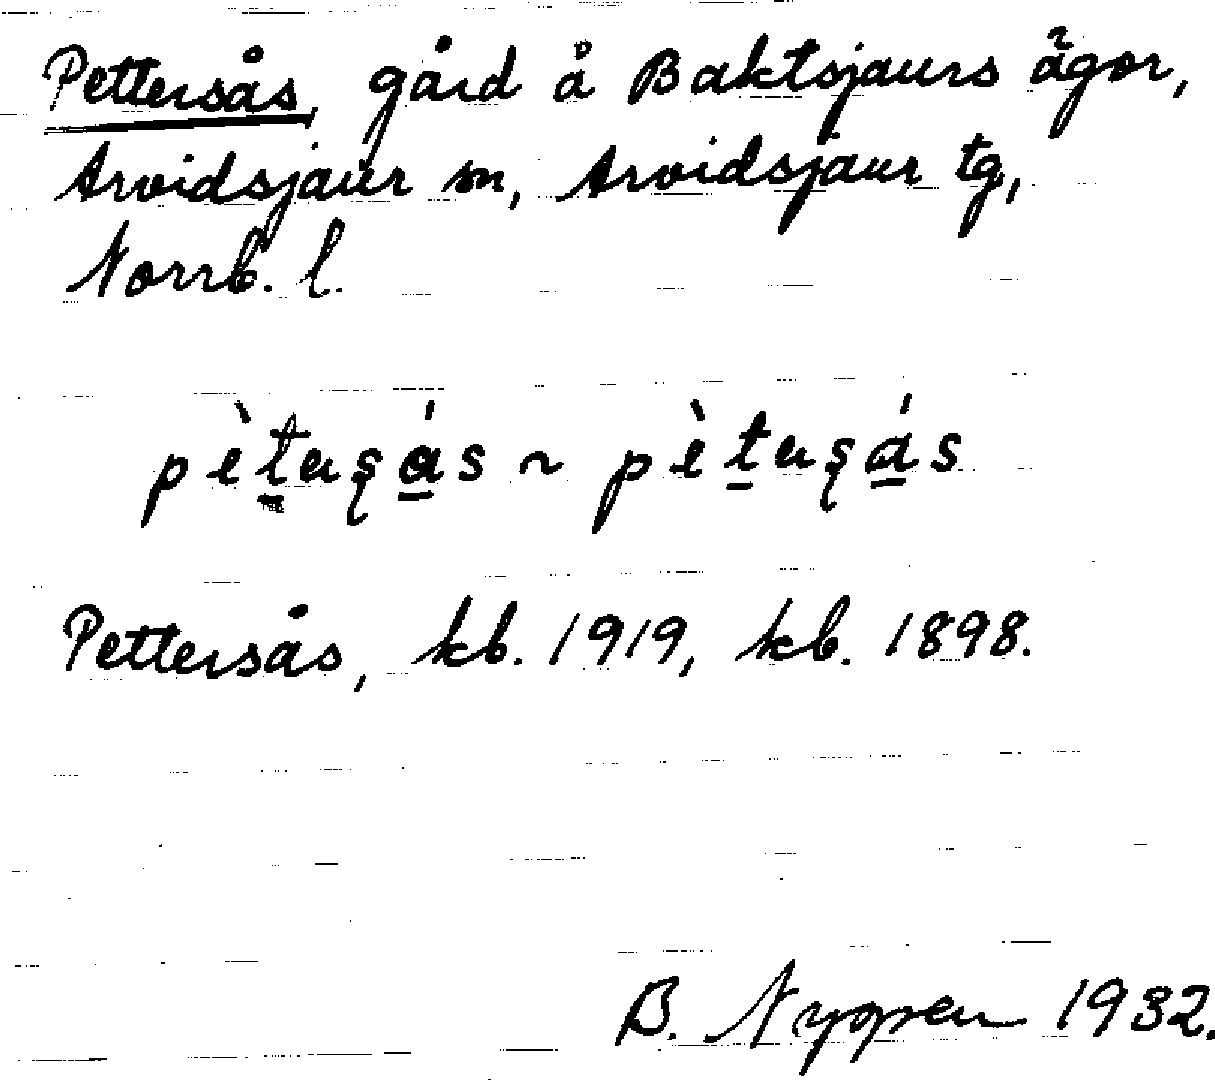 Pettersås, gård å Baktsjaurs ägor,
Arvidsjaur sn, Arvidsjaur tg,
Norrb. l.
Pettersås, kb. 1919, kb. 1898.
B. Nygren 1932.